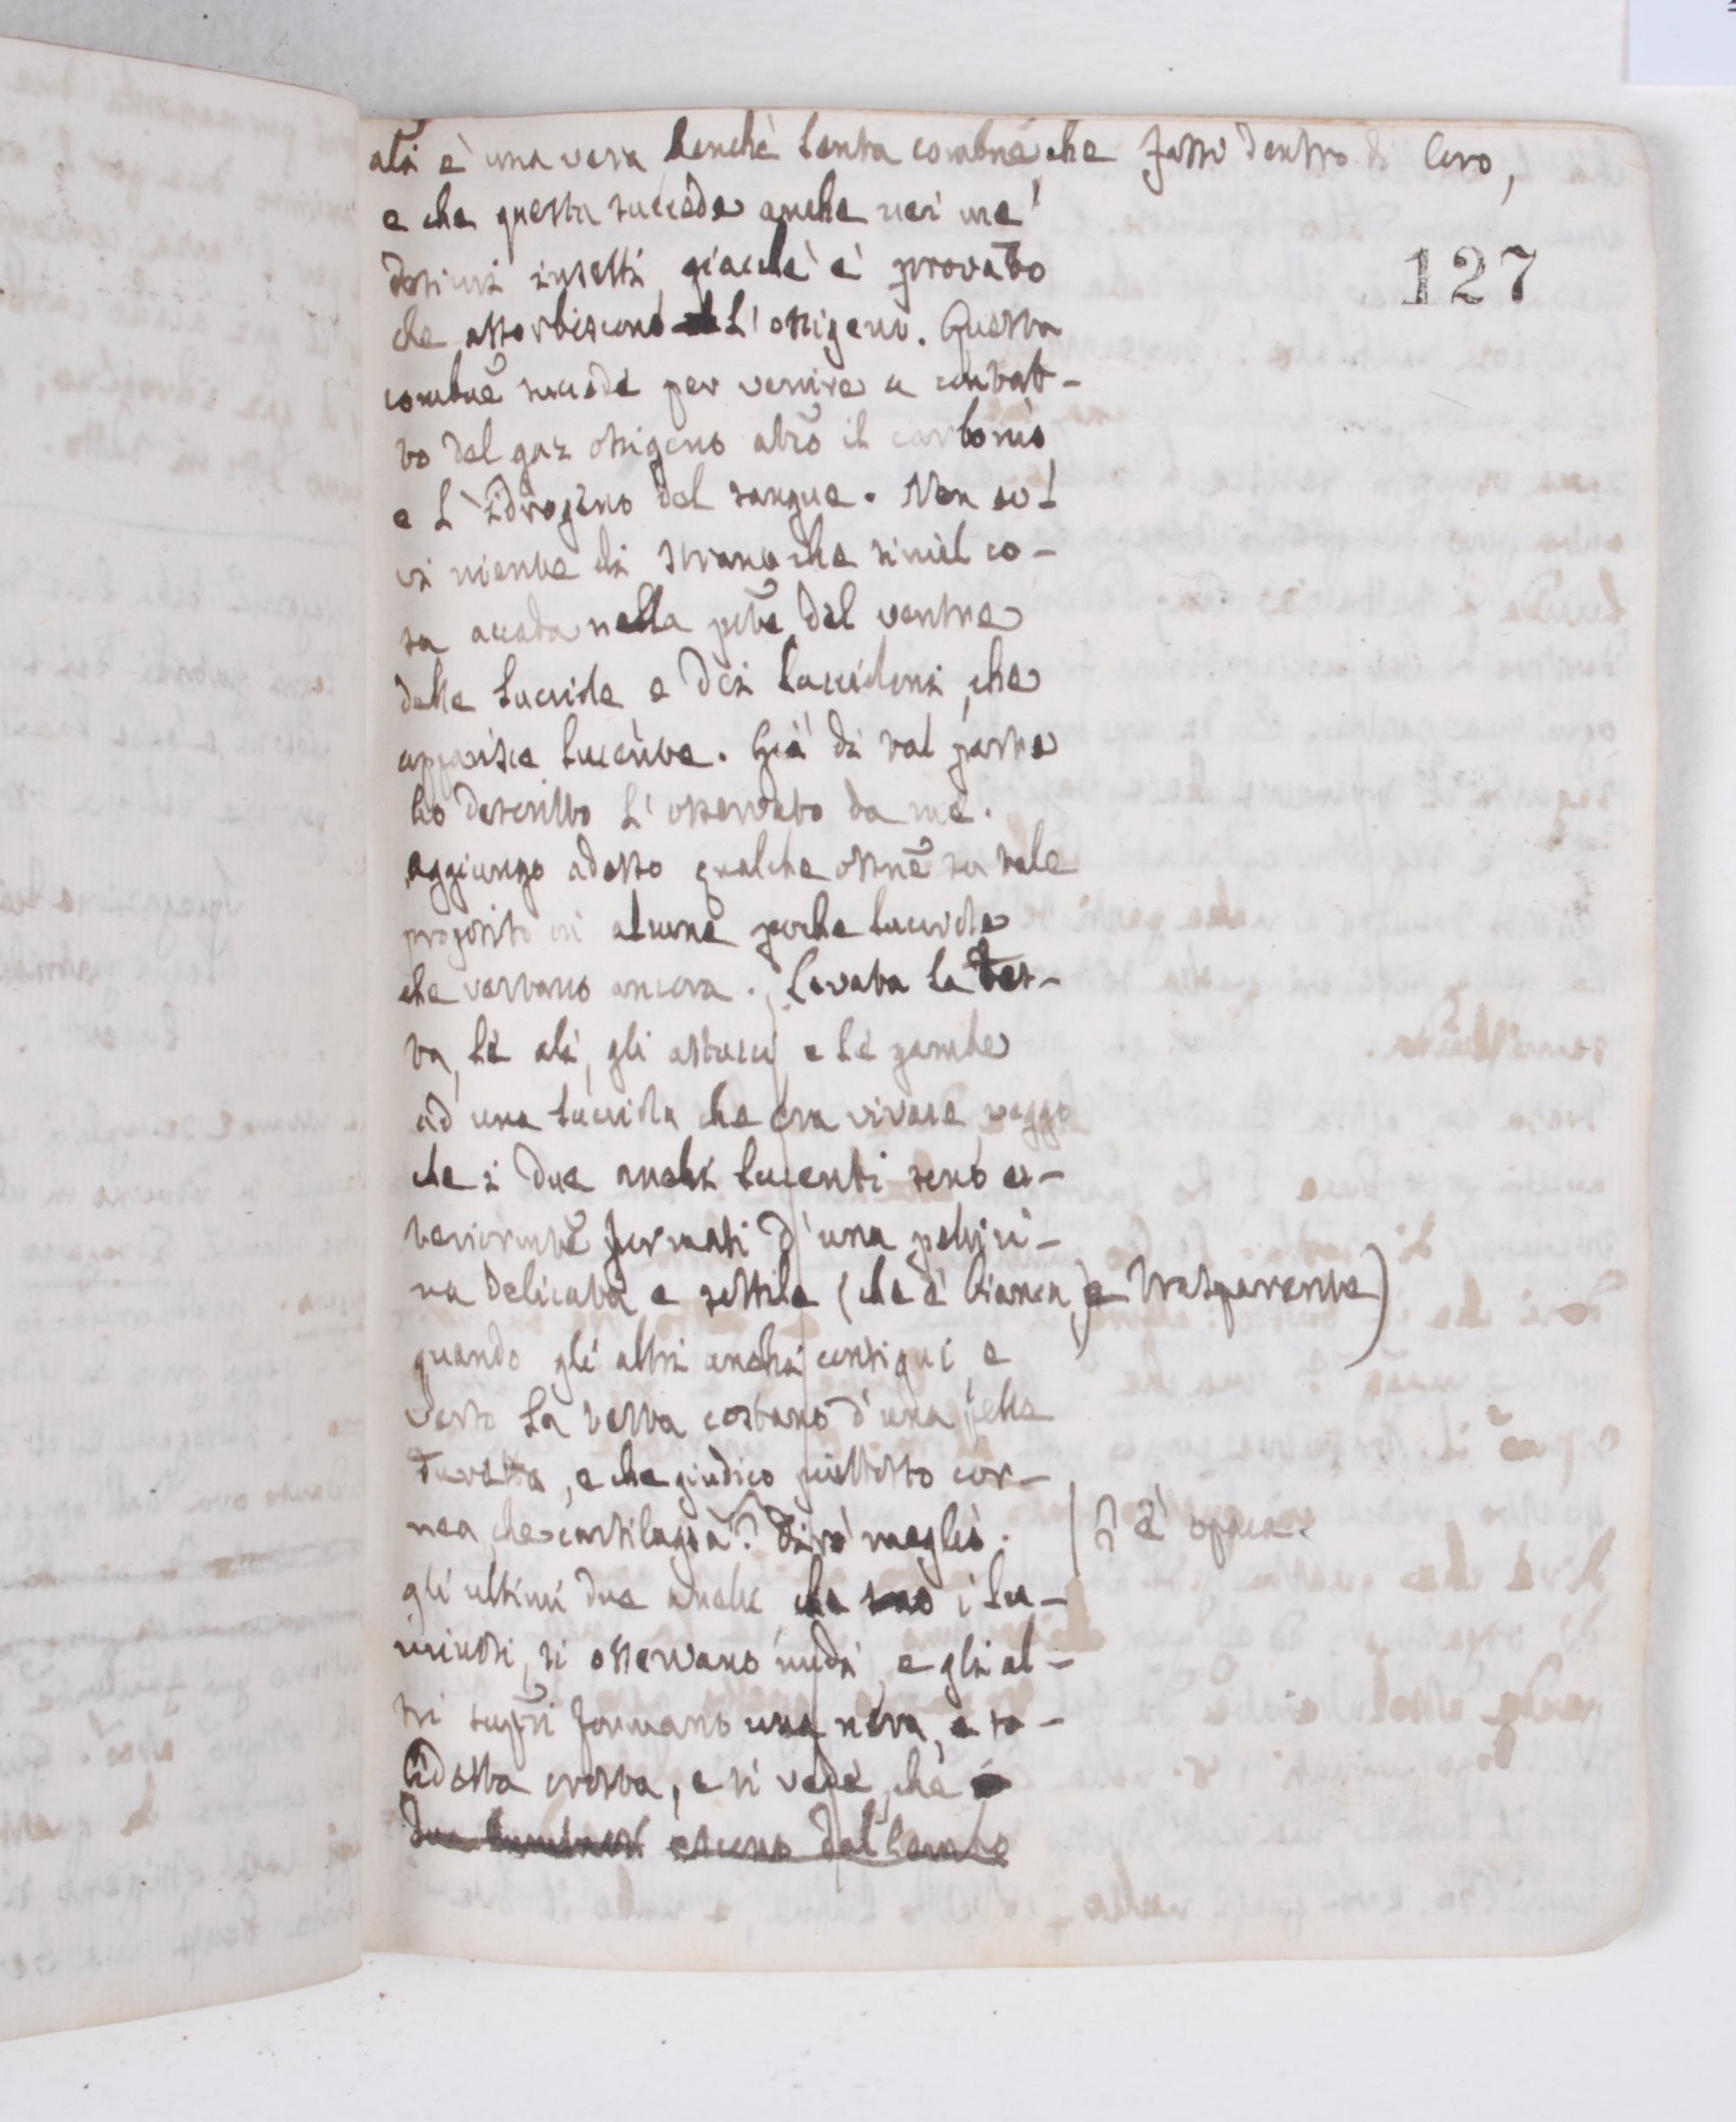 ali è una vera benchè lenta combne che fassi dentro di loro,
e che questa succede anche nei me-
desimi insetti, giacchè è provato
che assorbiscono l'ossigeno. Questa
combne succede per venire a contat-
to del gaz ossigeno atmo il carbonio
e l'idrogeno del sangue. Non av
vi niente di strano che simil co-
sa accada nella pte del ventre
delle lucciole e dei luccioloni, che
apparisce lucente. Già di tal parte
ho descritto l'osservato da me.
Aggiungo adesso qualche ossne su tale
proposito in alcune poche lucciole
che restano ancora. Levata la tes-
ta, le ali, gli astucci, e le gambe
ad una lucciola che era vivace, veggo
che i due anelli lucenti sono es-
teriormte formati d'una pellici-
na delicata e sottile (che è bianca, e trasparente)
quando gli altri anelli contigui, e
verso la testa costano d'una pelle
duretta, e che giudico piuttosto cor-
nea che cartilaga. Dirò meglio. | è opaca.
gli ultimi due anelli che sono i lu-
minosi, si osservano nudi, e gli al-
tri supri formano una nera, e so-
lidetta crosta, e si vede, che
due luminosi escono dal lembo
127